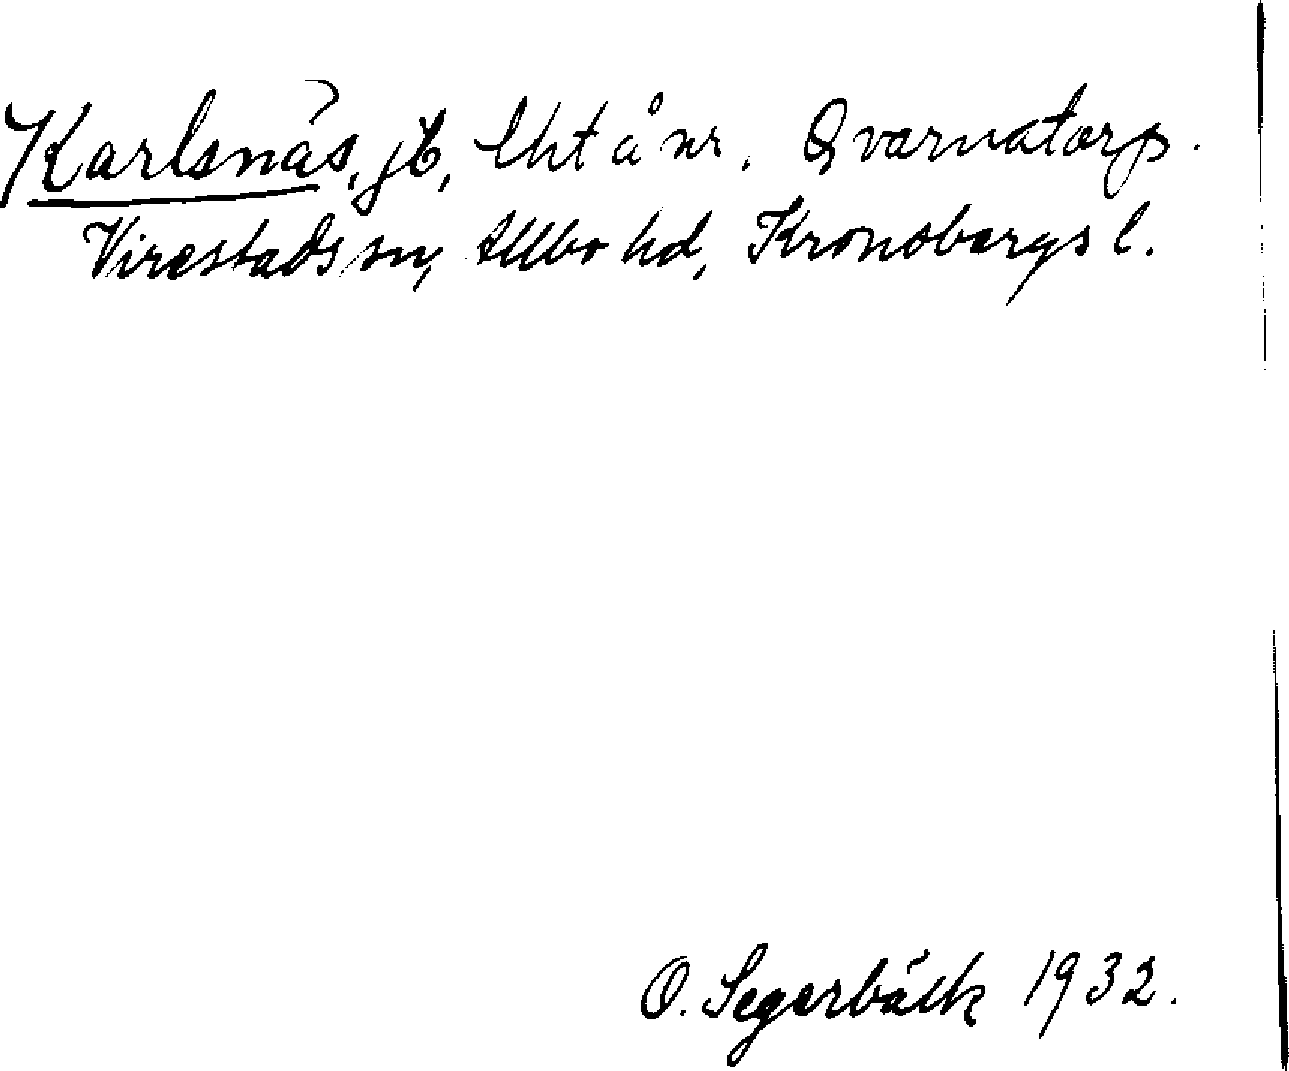 Karlsnäs, jb, lht å nr. Qvarnatorp.
Virestads sn, Allbo hd, Kronobergs l.
O. Segerbäck 1932.